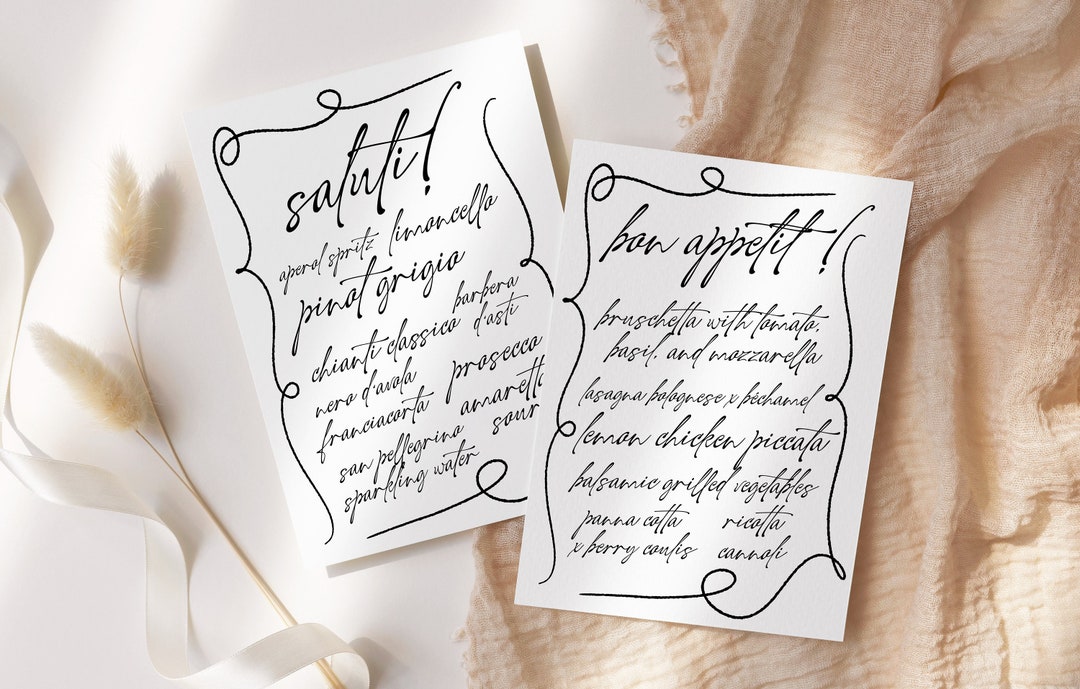 saluti!
aperol spritz limoncello
pinot grigio
barbera
d'asti
chianti classico
prosecco
nero d'avola
amarett
franciacorta
sour
san pellegrino
sparkling water
bon appetit!
bruschetta with tomato,
basil, and mozzarella
lasagna bolognese x béchamel
lemon chicken piccata
balsamic grilled vegetables
panna cotta
x berry coulis
ricotta
cannoli